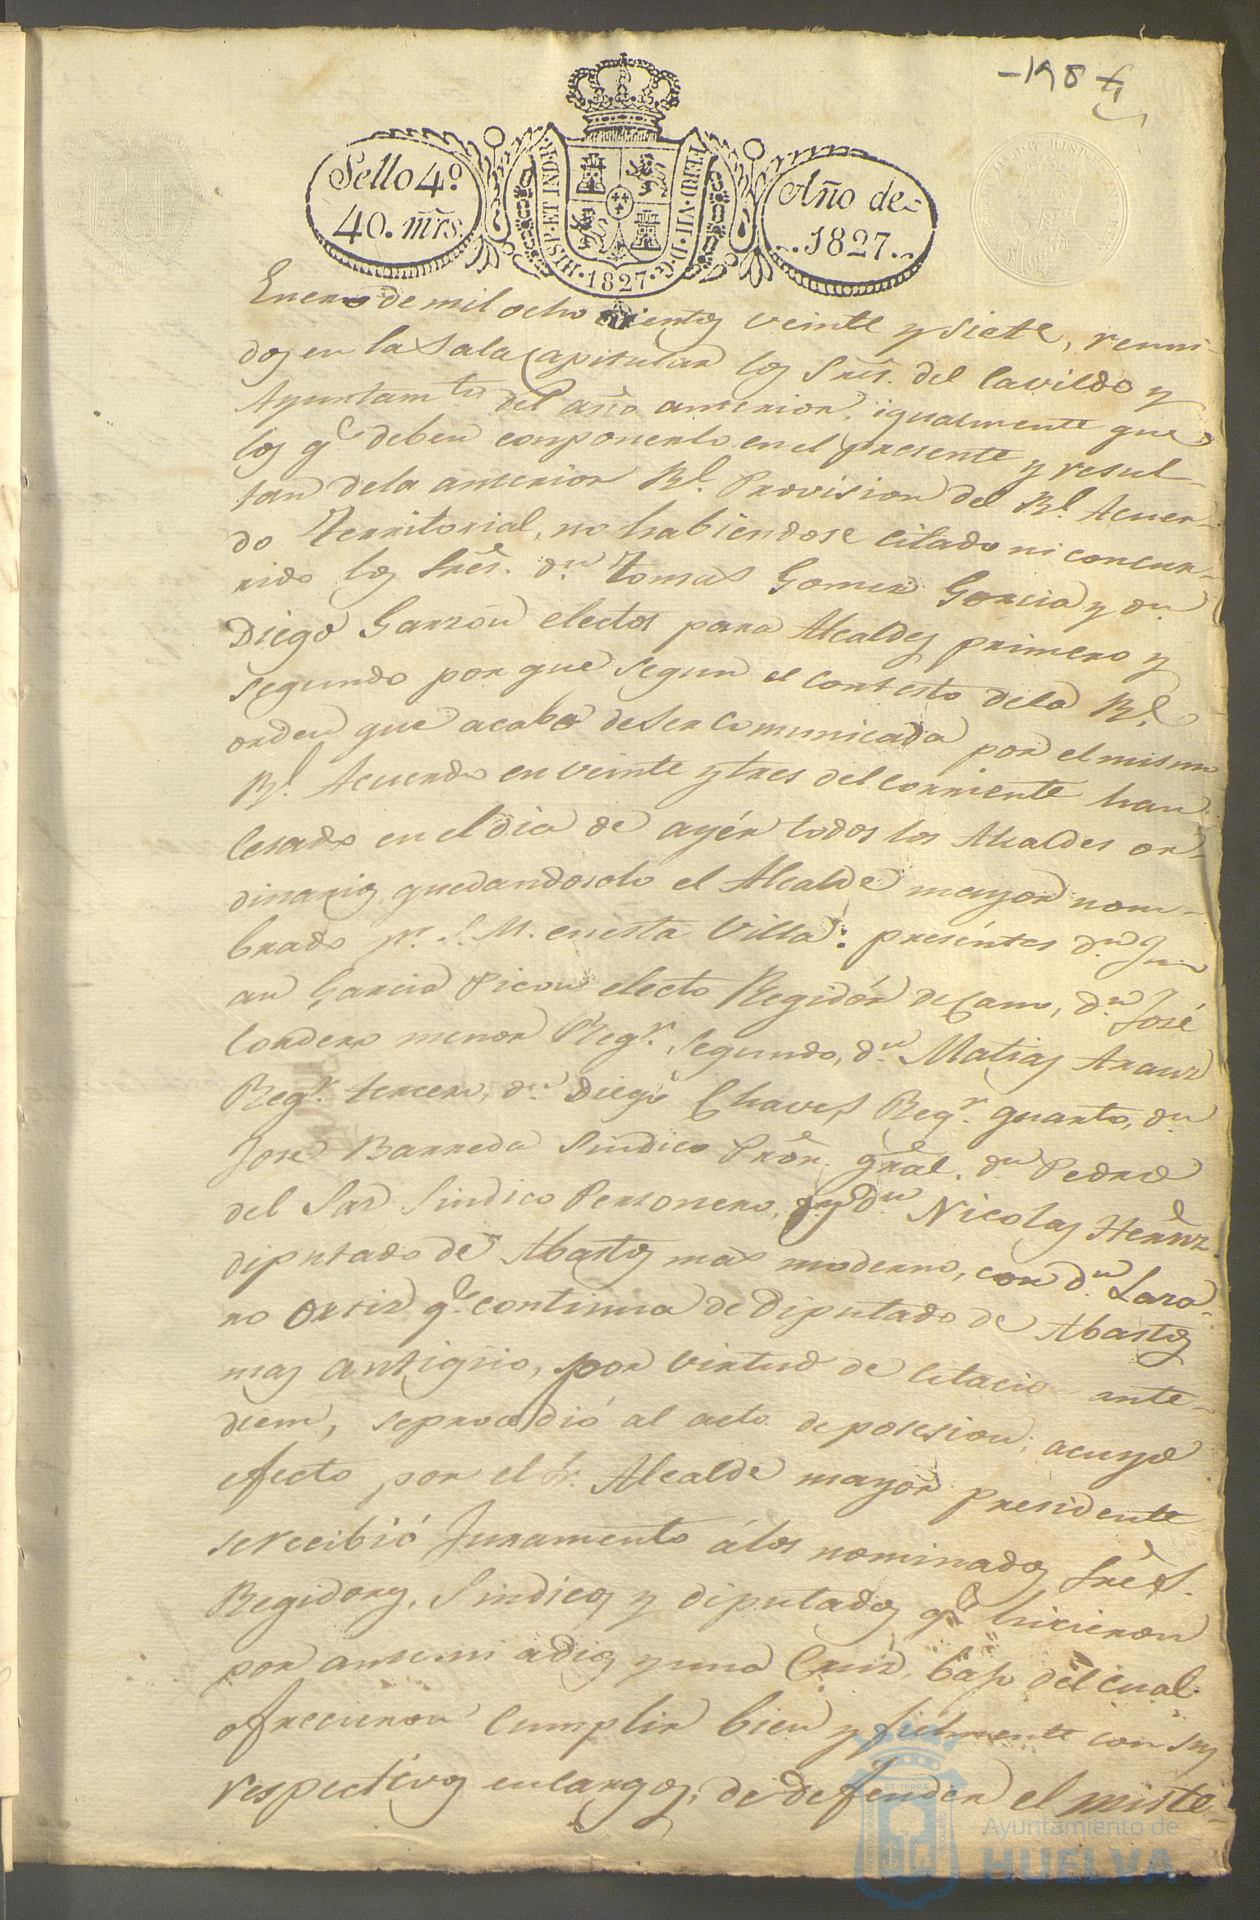 -198 fº
Sello 4.º
40. mrs.
HISP. ET IND. R.
FERD. VII. D. G.
1827
Año de
1827
Enero de mil ocho cientos veinte y siete, reuni-
dos en la Sala Capitular los Sres. del Cavildo y
Ayuntamto. del año anterior, igualmente que
los qe. deben componerlo en el presente y resul-
tan dela anterior Rl. Provision del Rl. Acuer-
do Territorial, no habiendose citado ni concur-
rido los Sres. Dn. Tomas Gomez Garcia y Dn.
Diego Garzón electos para Alcaldes primero y
segundo por que segun el contesto dela Rl.
orden que acaba de ser comunicada por el mismo
Rl. Acuerdo en veinte y tres del corriente han
cesado en el dia de ayér todos los Alcaldes or-
dinarios, quedando solo el Alcalde mayor nom-
brado pr. S. M. en esta Villa: presentes Dn. Ju-
an Garcia Picon electo Regidór decano, Dn. José
Cordero menor Regr. Segundo, Dn. Matias Arauz
Regr. tercero, Dn. Diego Chaves Regr. quarto, Dn.
José Barreda Sindico Pror. gral. Dn. Pedro
del Saz Sindico Personero, y Dn. Nicolas Hernz.
diputado de Abastos mas moderno, con Dn. Laza-
ro Ortiz qe. continua de Diputado de Abastos
mas antiguo, por virtud de citacion ante-
diem, se procedió al acto de posesion; a cuyo
efecto por el Sr. Alcalde mayor presidente
se recibió Juramento á los nominados Sres.
Regidores, Sindicos y diputados qe. hicieron
por ante mi a Dios y una Cruz, bajo del cual
ofrecieron cumplir bien y fielmente con sus
respectivos encargos; de defender el miste-
ET TERRÆ
Ayuntamiento de
HUELVA